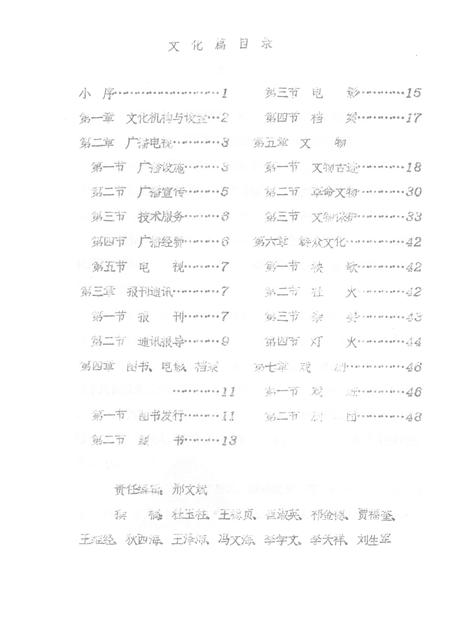 文化篇目录
小序…………………1
第一章 文化机构与设施…2
第二章 广播电视………3
第一节 广播设施………3
第二节 广播宣传………5
第三节 技术服务………6
第四节 广播经费………6
第五节 电视………7
第三章 报刊通讯………7
第一节 报刊………7
第二节 通讯报导………9
第四章 图书、电影、档案
…………11
第一节 图书发行………11
第二节 图书………13
第三节 电影………15
第四节 档案………17
第五章 文物
第一节 文物古迹………18
第二节 革命文物………30
第三节 文物保护………33
第六章 群众文化………42
第一节 秧歌………42
第二节 社火………42
第三节 ………43
第四节 灯火………44
第七章 戏剧………46
第一节 戏………46
第二节 剧团………48
责任编辑:邢文斌
撰稿:杜玉柱、王 贞、 淑英、祁俭德、贾福 、
王 、狄西海、王泽 、冯文海、李学文、李天祥、刘生